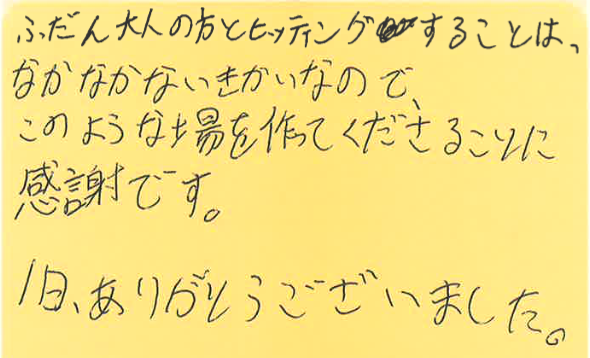 ふだん大人の方とヒッティングすることは、
なかなかないきかいなので、
このような場を作ってくださることに
感謝です。
1日、ありがとうございました。